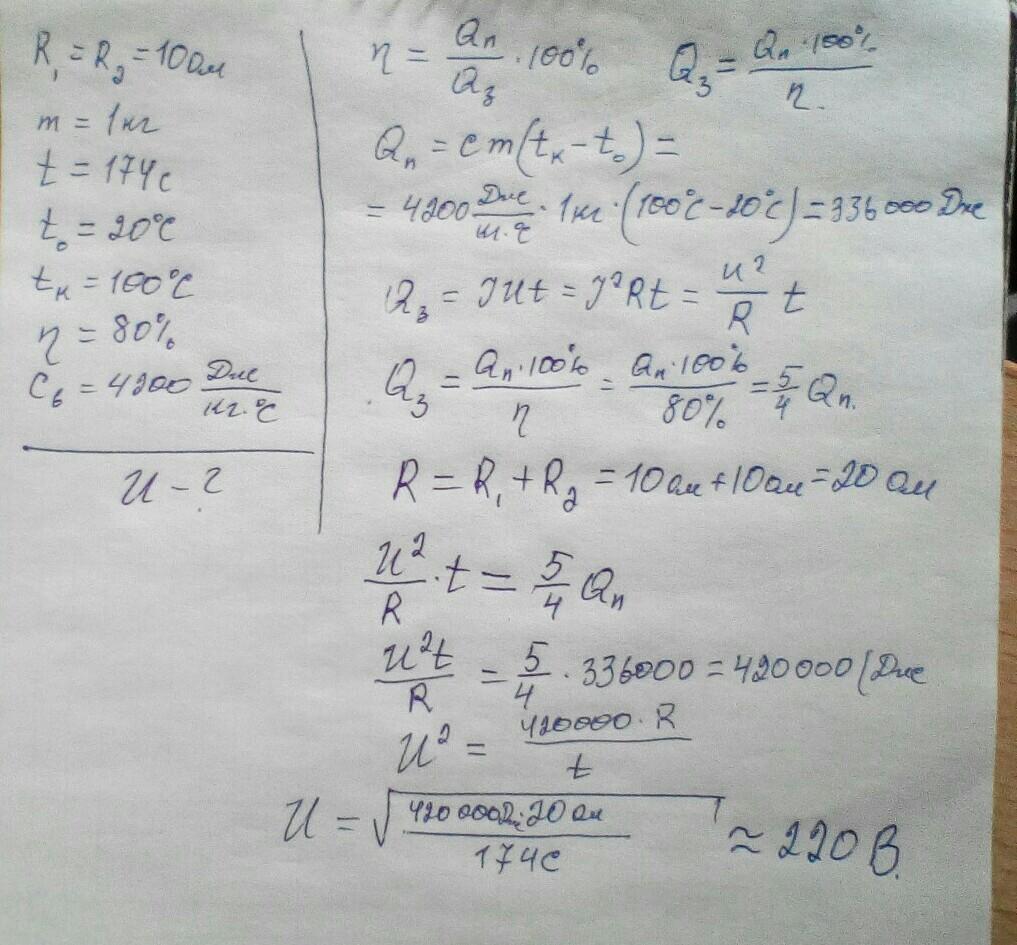 R₁ = R₂ = 10 Ом
m = 1 кг
t = 174 с
t₀ = 20°C
tк = 100°C
η = 80%
Cв = 4200 Дж/кг·°C
U - ?
η = Qп/Qз · 100% Qз = Qп · 100%/η.
Qп = cm(tк - t₀) =
= 4200 Дж/кг·°C · 1 кг · (100°C - 20°C) = 336000 Дж
Qз = IUt = I²Rt = U²/R t
Qз = Qп · 100%/η = Qп · 100%/80% = 5/4 Qп.
R = R₁ + R₂ = 10 Ом + 10 Ом = 20 Ом
U²/R · t = 5/4 Qп
U²t/R = 5/4 · 336000 = 420000 (Дж
U² = 420000 · R/t
U = √420000 · 20 Ом/174 с ≈ 220 В.